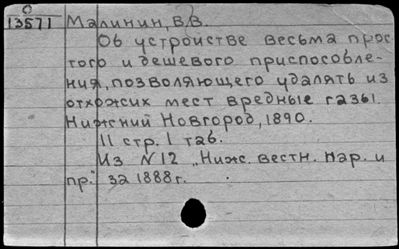 О
13571 Малинин, В.В.
Об устройстве весьма прос
того и дешевого приспособле-
ния, позволяющего удалять из
отхожих мест вредные газы.
Нижний Новгород, 1890.
11 стр. 1 таб.
Из N12 „Ниж. вестн. пар. и
пр." за 1888 г.